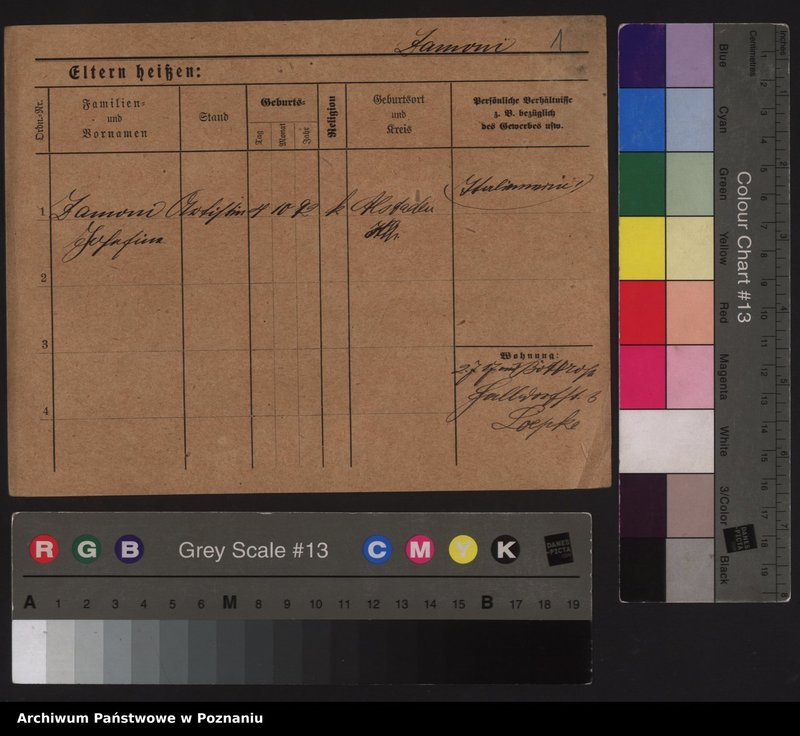 Zamoni 1
Eltern heißen:
Ordn.-Nr.
Familien-
und
Vornamen
Stand
Geburts-
Tag
Monat
Jahr
Religion
Geburtsort
und
Kreis
Persönliche Verhältnisse
z. B. bezüglich
des Gewerbes usw.
1
Zamoni Artistin 4 10 92 k
Josefine
2
3
4
Wohnung:
Loepke
Archiwum Państwowe w Poznaniu
R G B Grey Scale #13 C M Y K
DANES
-PICTA
A 1 2 3 4 5 6 M 8 9 10 11 12 13 14 15 B 17 18 19
Colour Chart #13
Blue
Cyan
Green
Yellow
Red
Magenta
White
3/Color
Black
Centimetres
Inches
1 2 3 4 5 6 7 8 9 10 11 12 13 14 15 16 17 18 19
1 2 3 4 5 6 7 8
DANES
-PICTA